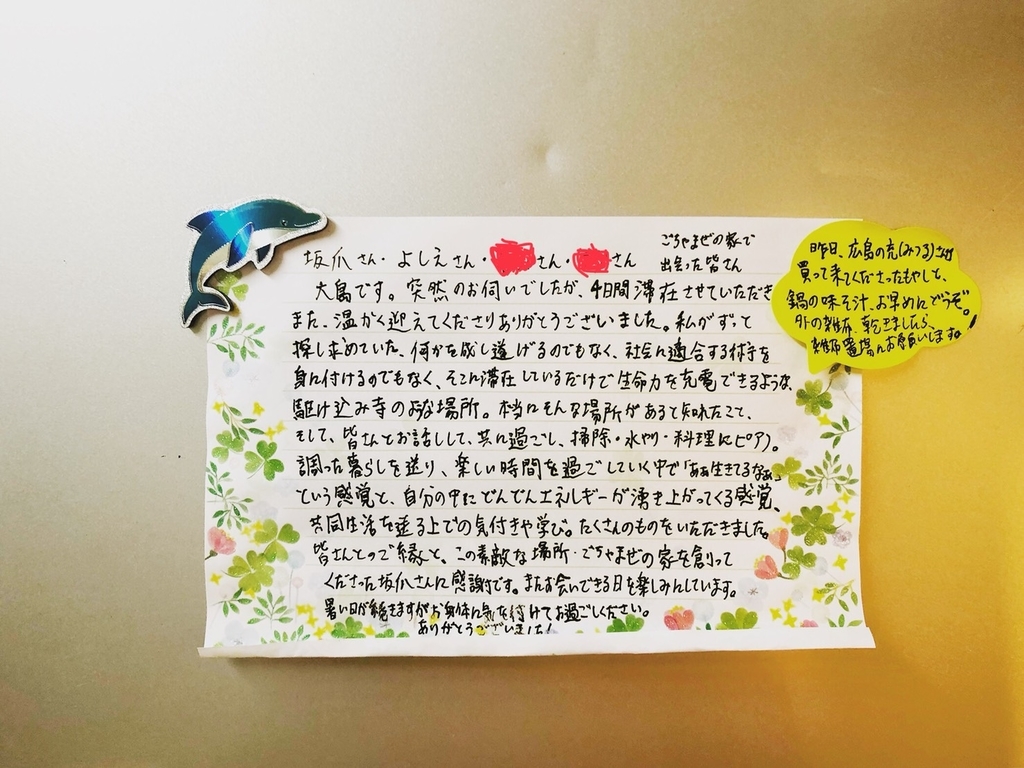 坂爪さん・よしえさん・さん・さん
ごちゃまぜの家で
出会った皆さん
大島です。突然のお伺いでしたが、4日間滞在させていただき
また、温かく迎えてくださりありがとうございました。私がずっと
探し求めていた、何かを成し遂げるのでもなく、社会に適合する術を
身に付けるのでもなく、そこに滞在しているだけで生命力を充電できるような、
駆け込み寺のような場所。本当にそんな場所があると知れたこと、
そして、皆さんとお話しして、共に過ごし、掃除・水やり・料理にピアノ。
調った暮らしを送り、楽しい時間を過ごしていく中で「あぁ生きてるなぁ」
という感覚と、自分の中にどんどんエネルギーが湧き上がってくる感覚、
共同生活を送る上での気付きや学び。たくさんのものをいただきました。
皆さんとのご縁と、この素敵な場所・ごちゃまぜの家を創って
くださった坂爪さんに感謝です。またお会いできる日を楽しみにしています。
暑い日が続きますがお身体に気を付けてお過ごしください。
ありがとうございました!
昨日、広島の充(みつる)さんが
買って来てくださったもやしと、
鍋の味そ汁、お早めにどうぞ。
外の雑紙、乾きましたら、
雑紙置場にお願いします。